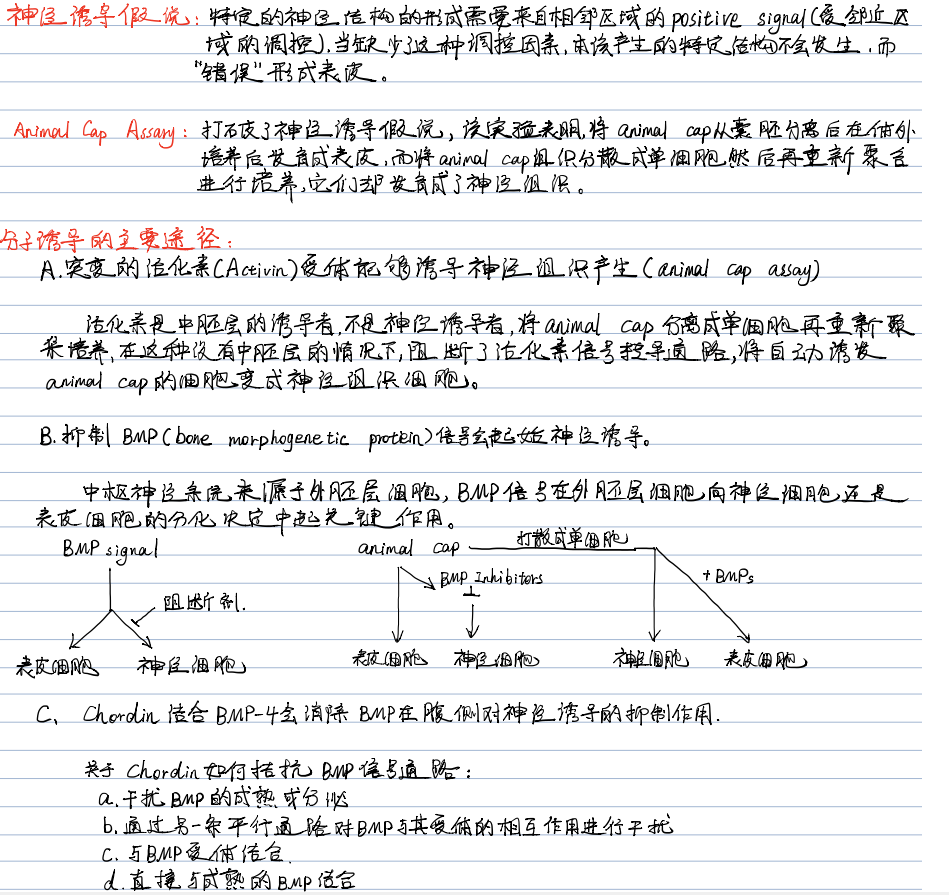 神经诱导假说：特定的神经结构的形成需要来自相邻区域的positive signal(受邻近区
域的调控).当缺少了这种调控因素,本该产生的特定结构不会发生,而
"错误"形成表皮。
Animal Cap Assay：打破了神经诱导假说,该实验表明,将animal cap从囊胚分离后在体外
培养后发育成表皮,而将animal cap组织分散成单细胞然后再重新聚合
进行培养,它们却发育成了神经组织。
分子诱导的主要途径：
A.突变的活化素(Activin)受体能够诱导神经组织产生(animal cap assay)
活化素是中胚层的诱导者,不是神经诱导者,将animal cap分离成单细胞再重新聚
集培养,在这种没有中胚层的情况下,阻断了活化素信号转导通路,将自动诱发
animal cap的细胞变成神经组织细胞。
B.抑制BMP(bone morphogenetic protein)信号会起始神经诱导。
中枢神经系统来源于外胚层细胞,BMP信号在外胚层细胞向神经细胞还是
表皮细胞的分化决定中起关键作用。
BMP signal animal cap 打散成单细胞
BMP Inhibitors +BMPs
阻断剂.
表皮细胞 神经细胞 表皮细胞 神经细胞 神经细胞 表皮细胞
C、Chordin结合BMP-4会消除BMP在腹侧对神经诱导的抑制作用.
关于Chordin如何拮抗BMP信号通路：
a.干扰BMP的成熟或分泌
b.通过另一条平行通路对BMP与其受体的相互作用进行干扰
c.与BMP受体结合.
d.直接与成熟的BMP结合